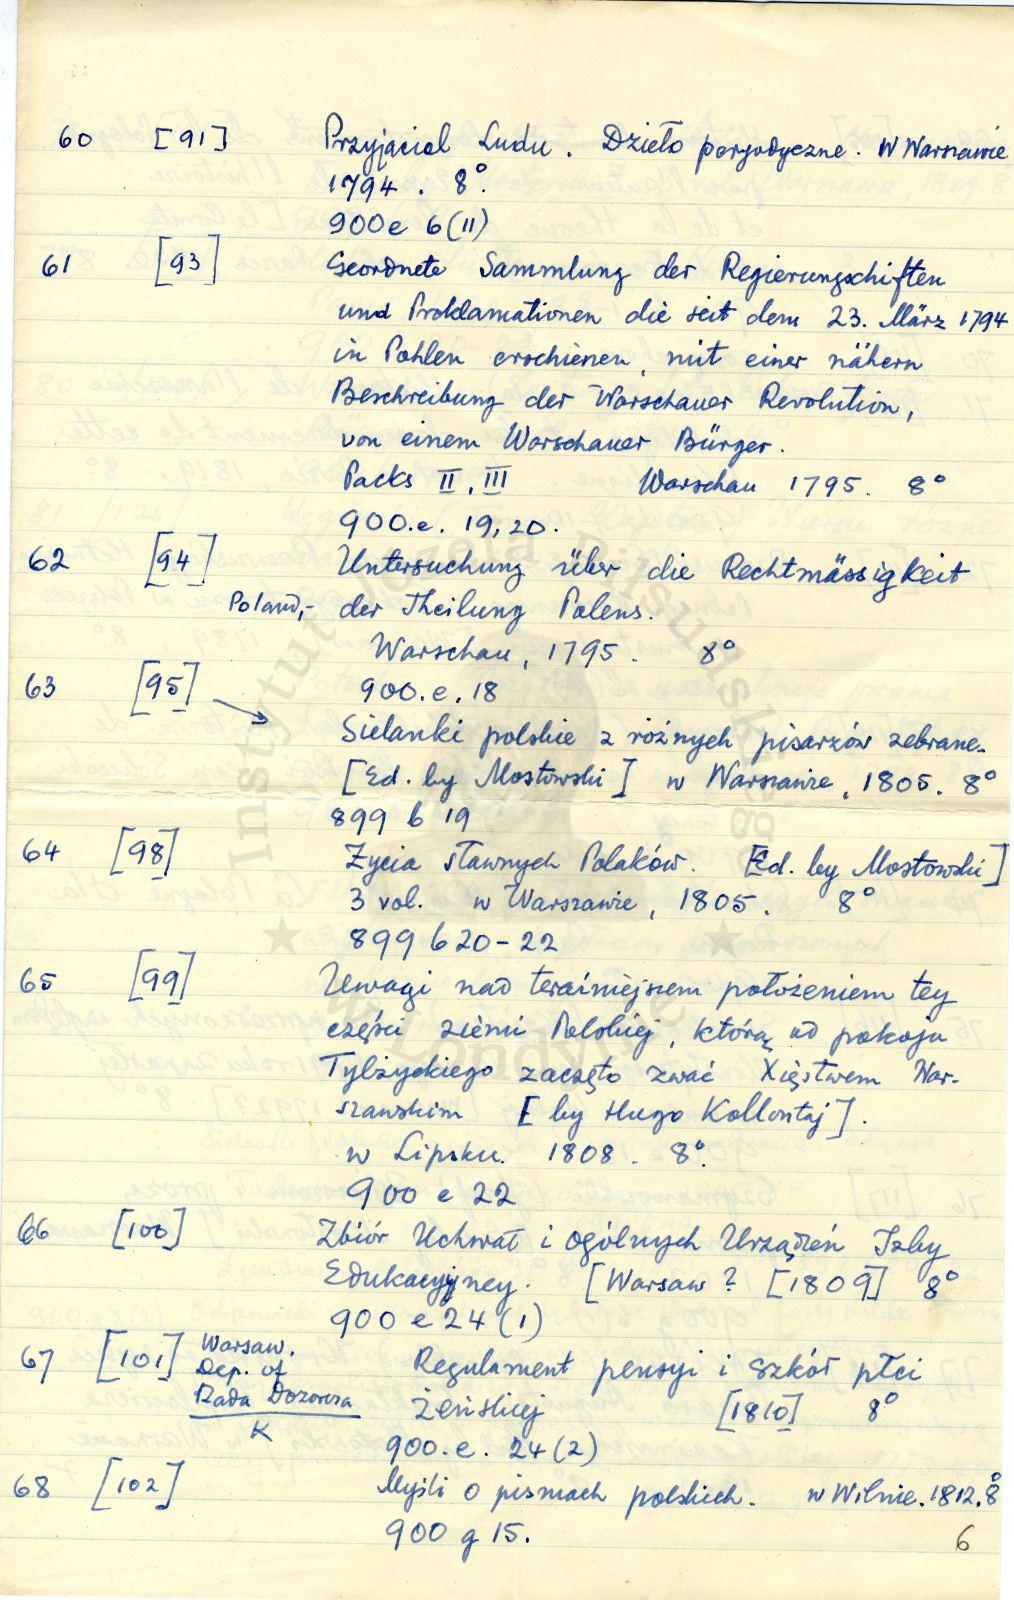 60 [91] Przyjaciel Ludu. Dzieło peryodyczne. W Warszawie
1794. 8°.
900e 6(11)
61 [93] Geordnete Sammlung der Regierungschiften
und Proklamationen die seit dem 23. März 1794
in Pohlen erschienen, mit einer nähern
Beschreibung der Warschauer Revolution,
von einem Warschauer Bürger.
Packs II, III Warschau 1795. 8°
900.e. 19,20.
62 [94] Untersuchung über die Rechtmässigkeit
Poland,- der Theilung Polens.
Warschau, 1795. 8°
63 [95] 900.e.18
Sielanki polskie z różnych pisarzów zebrane.
[Ed. by Mostowski] w Warszawie, 1805. 8°
899 b 19
64 [98] Życia sławnych Polaków. [Ed. by Mostowski]
3 vol. w Warszawie, 1805. 8°
899 b 20-22
65 [99] Uwagi nad teraźniejszem położeniem tey
części ziemi Polskiej, którą od pokoju
Tylżyckiego zaczęto zwać Xięstwem War-
szawskim [by Hugo Kollontaj].
w Lipsku. 1808. 8°.
900 e 22
66 [100] Zbiór Uchwał i ogólnych Urządzeń Izby
Edukacyjney. [Warsaw? [1809] 8°
900 e 24 (1)
67 [101] Warsaw. Regulament pensyi i szkół płci
Dep. of
Rada Dozorcza Żeńskiej [1810] 8°
K
900.e. 24(2)
68 [102] Myśli o pismach polskich. w Wilnie. 1812. 8°
900 g 15.
6
Instytut Józefa Piłsudskiego
w Londynie